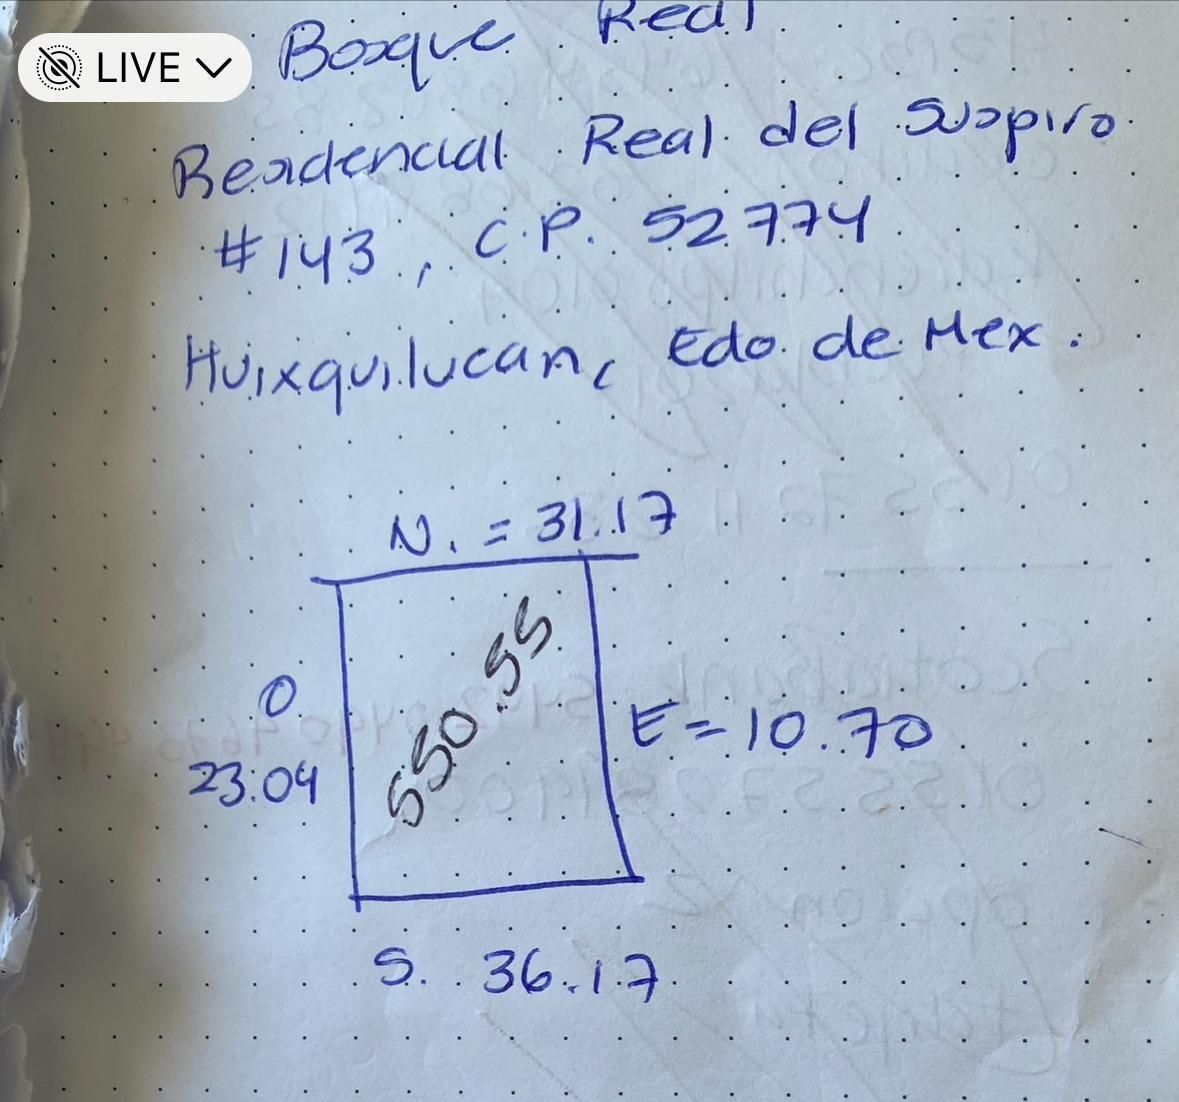 LIVE
Bosque Real
Residencial Real del Suspiro
#143, C.P. 52774
Huixquilucan, Edo. de Mex.
N. = 31.17
550.55
O
23.04
E = 10.70
S. 36.17